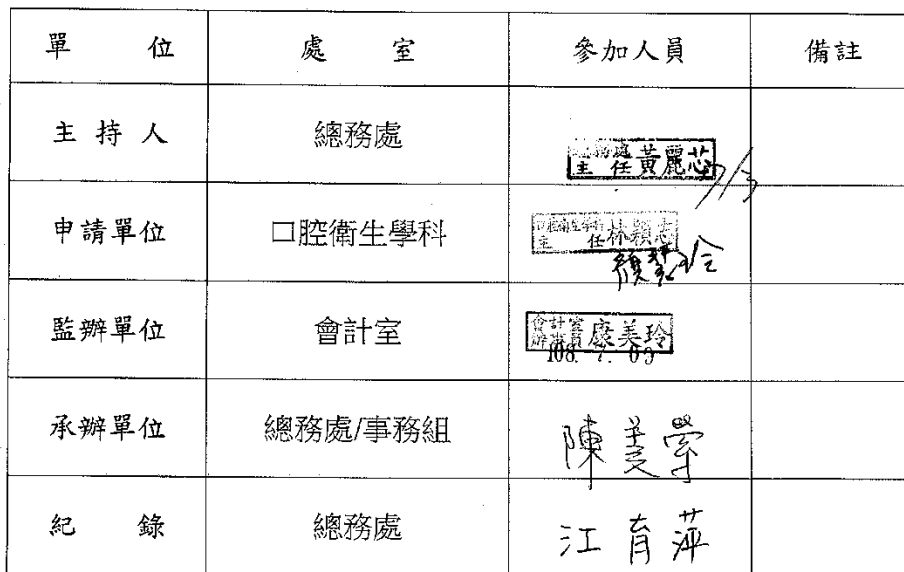 單 位 處 室 參加人員 備註
主 持 人 總務處
總務處
主 任 黃麗芯
7/9
申請單位 口腔衛生學科
口腔衛生學科
主 任 林穎志
監辦單位 會計室
會計室
辦事員 康美玲
108. 7. 09
承辦單位 總務處/事務組 陳美
紀 錄 總務處 江育萍